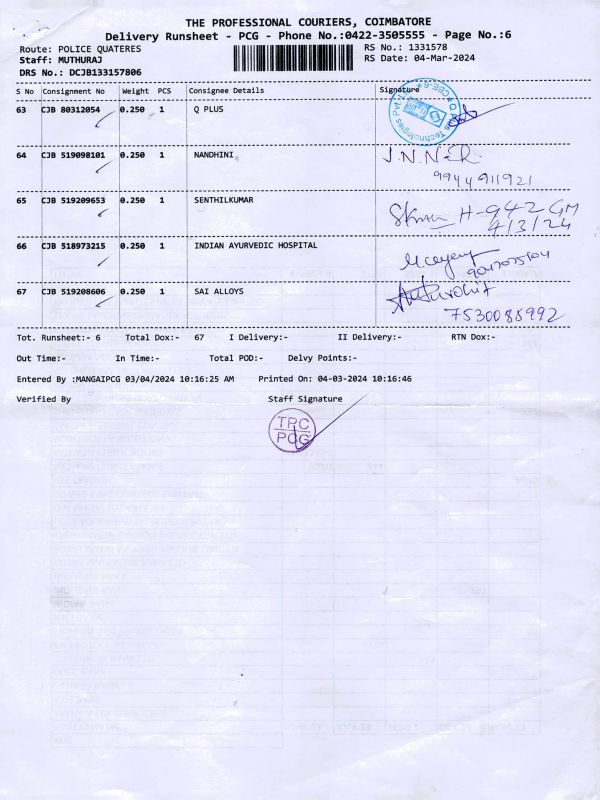 THE PROFESSIONAL COURIERS, COIMBATORE
Delivery Runsheet - PCG - Phone No.:0422-3505555 - Page No.:6
Route: POLICE QUATERES RS No.: 1331578
Staff: MUTHURAJ RS Date: 04-Mar-2024
DRS No.: DCJB133157806
S No Consignment No Weight PCS Consignee Details Signature
63 CJB 80312054 0.250 1 Q PLUS
64 CJB 519098101 0.250 1 NANDHINI J.N.
9944911921
65 CJB 519209653 0.250 1 SENTHILKUMAR H-942 GM
4/3/24
66 CJB 518973215 0.250 1 INDIAN AYURVEDIC HOSPITAL
67 CJB 519208606 0.250 1 SAI ALLOYS
7530088992
Tot. Runsheet:- 6 Total Dox:- 67 I Delivery:- II Delivery:- RTN Dox:-
Out Time:- In Time:- Total POD:- Delvy Points:-
Entered By :MANGAIPCG 03/04/2024 10:16:25 AM Printed On: 04-03-2024 10:16:46
Verified By Staff Signature
TPC
PCG